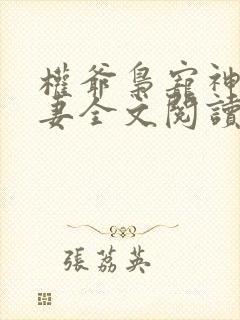 權爺梟寵神
妻全文閱讀
張荔英